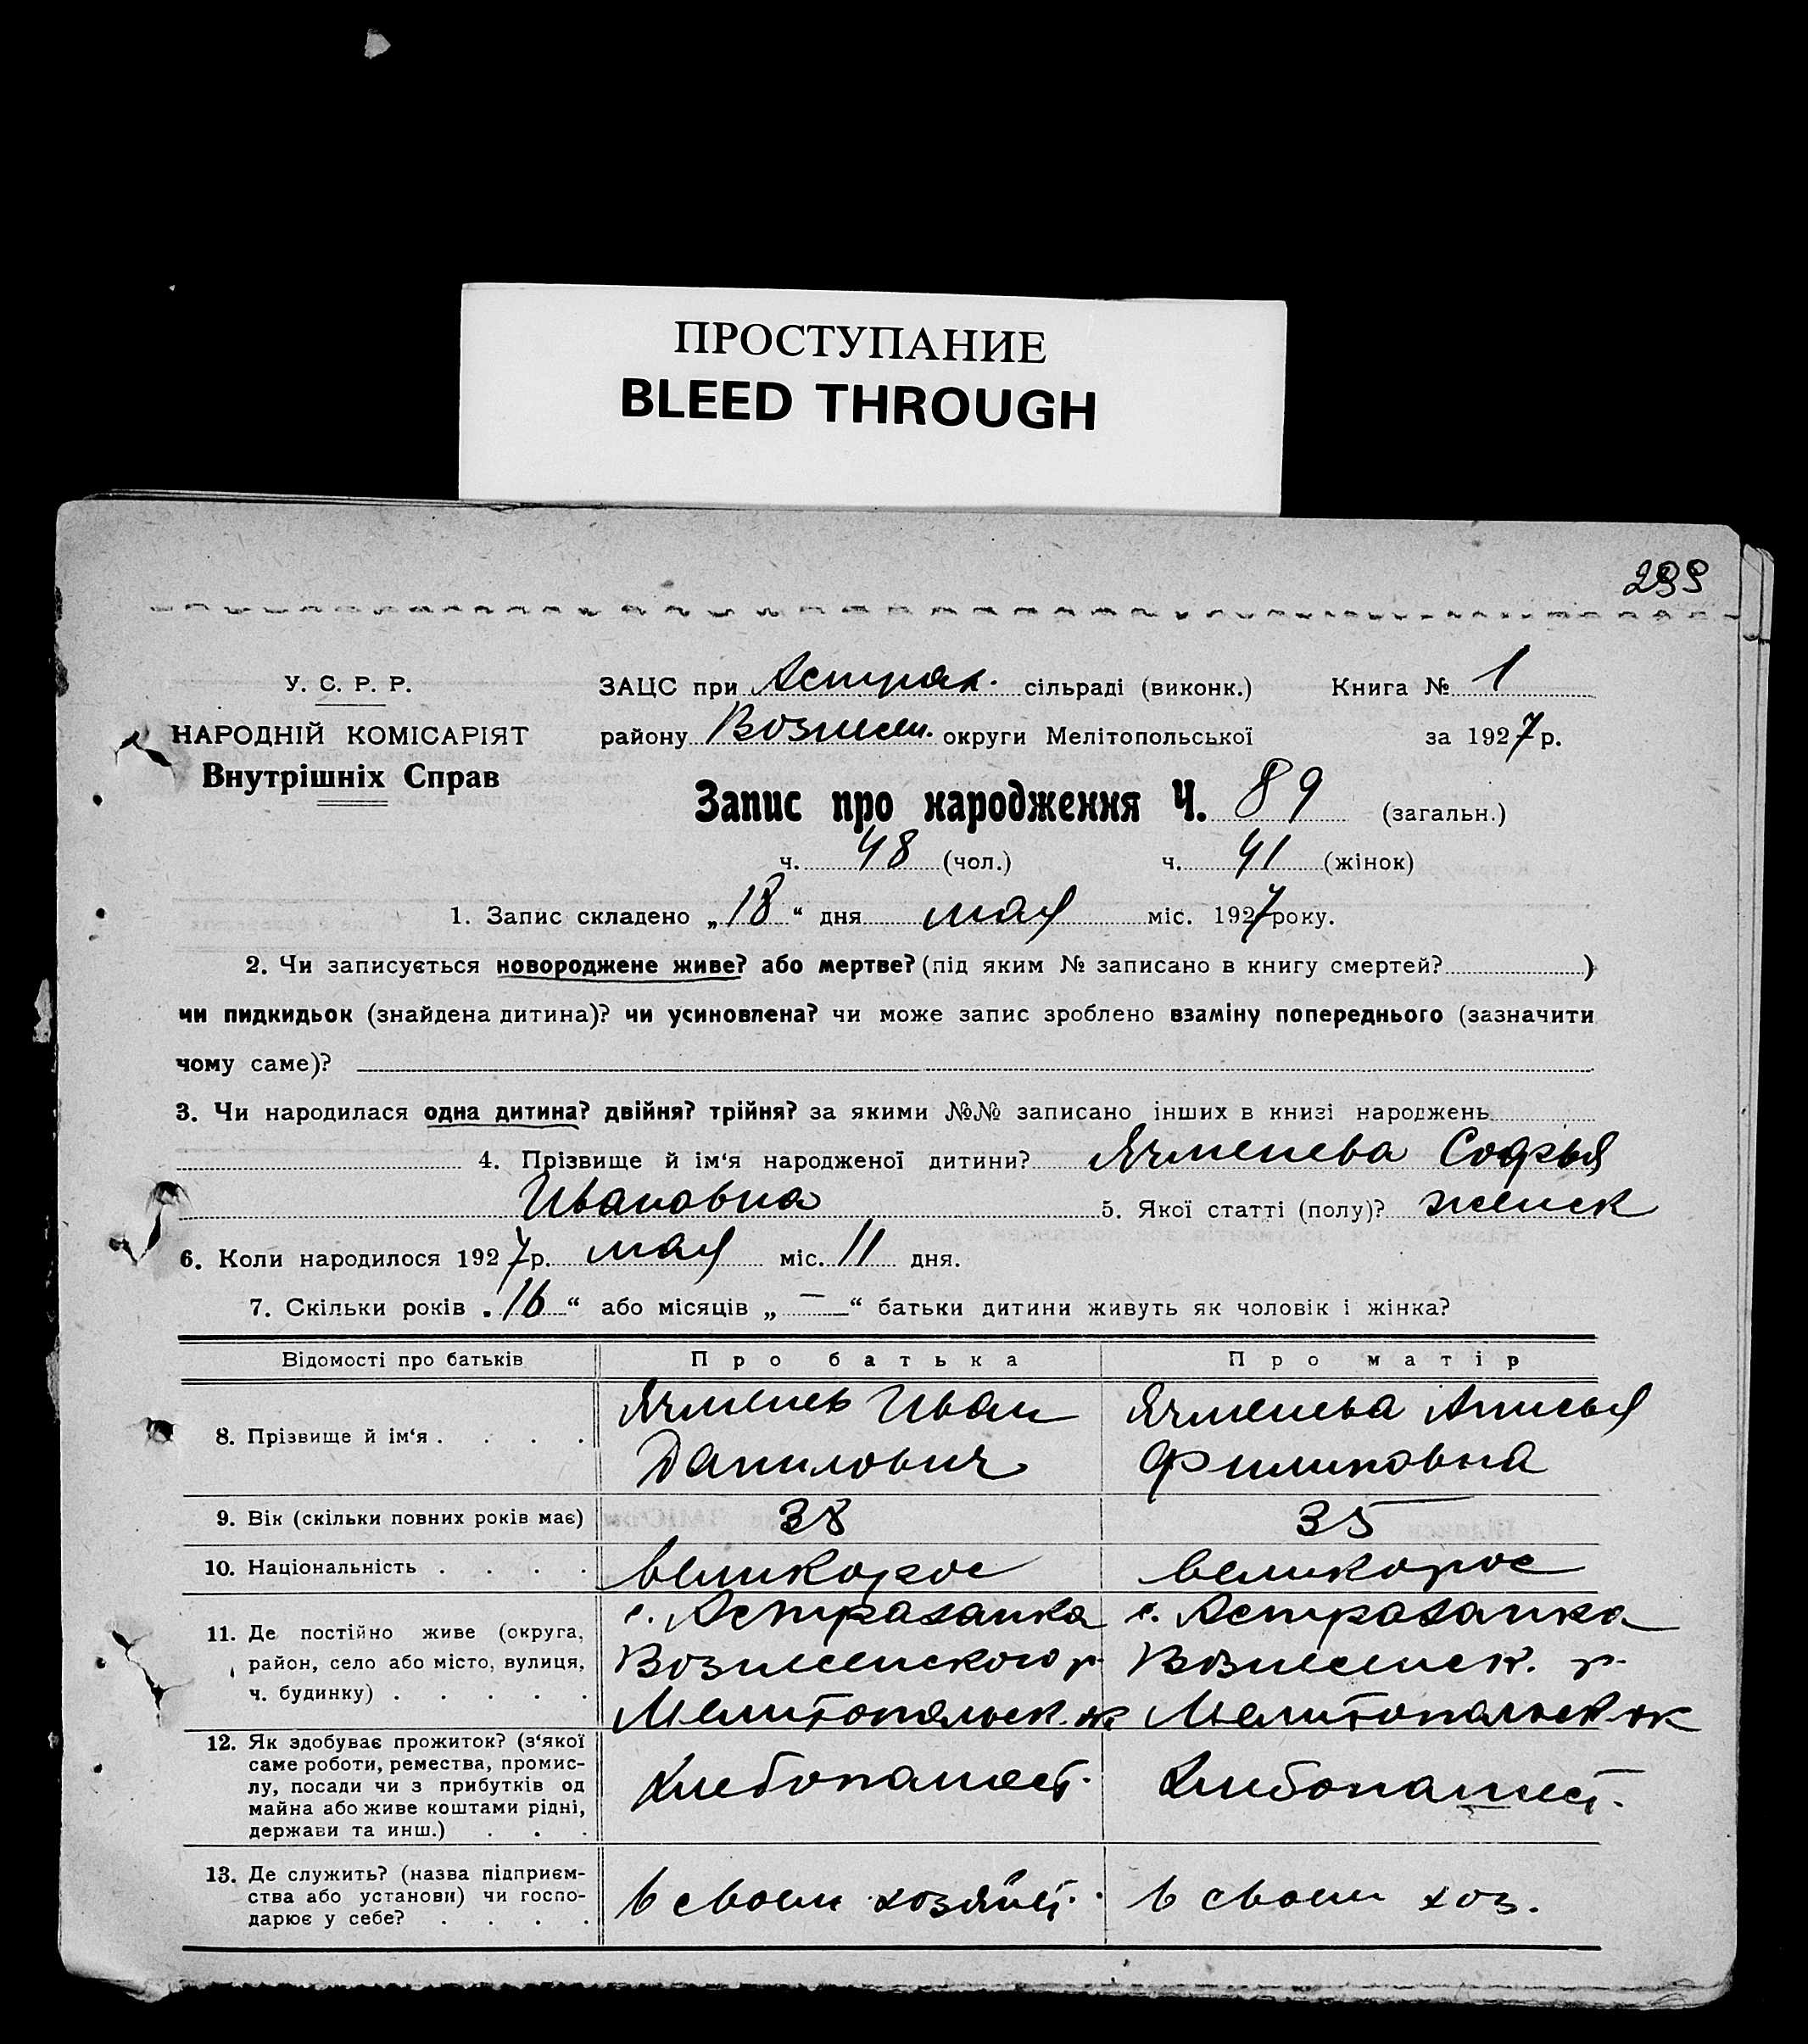 ПРОСТУПАНИЕ
BLEED THROUGH
У. С. Р. Р.
НАРОДНІЙ КОМІСАРІЯТ
Внутрішніх Справ
ЗАЦС при Астрах. сільраді (виконк.) Книга № 1
району Вознесен. округи Мелітопольської за 1927 р.
Запис про народження Ч. 89 (загальн.)
ч. 48 (чол.) ч. 41 (жінок)
1. Запис складено „18“ дня мая міс. 1927 року.
2. Чи записується новороджене живе? або мертве? (під яким № записано в книгу смертей? )
чи пидкидьок (знайдена дитина)? чи усиновлена? чи може запис зроблено взаміну попереднього (зазначити
чому саме)?
3. Чи народилася одна дитина? двійня? трійня? за якими №№ записано інших в книзі народжень
4. Прізвище й ім‘я народженої дитини? Ячменева Софья
Ивановна 5. Якої статті (полу)? женск
6. Коли народилося 1927 р. мая міс. 11 дня.
7. Скільки років „16“ або місяців „—“ батьки дитини живуть як чоловік і жінка?
Відомості про батьків Про батька Про матір
8. Прізвище й ім‘я . . . . Ячменев Иван Данилович
Ячменева Анисья Филиповна
9. Вік (скільки повних років має) 38 35
10. Національність . . . . великорос великорос
11. Де постійно живе (округа,
район, село або місто, вулиця,
ч. будинку) . . . . .
с. Астраханка
Вознесенского р.
Мелитопольск. ок
с. Астраханка
Вознесенск. р.
Мелитопольск ок
12. Як здобуває прожиток? (з‘якої
саме роботи, ремества, промис-
лу, посади чи з прибутків од
майна або живе коштами рідні,
держави та инш.) . . .
Хлебопашест.
Хлебопашест.
13. Де служить? (назва підприєм-
ства або установи) чи госпо-
дарює у себе? . . . .
в своем хозяйст.
в своем хоз.